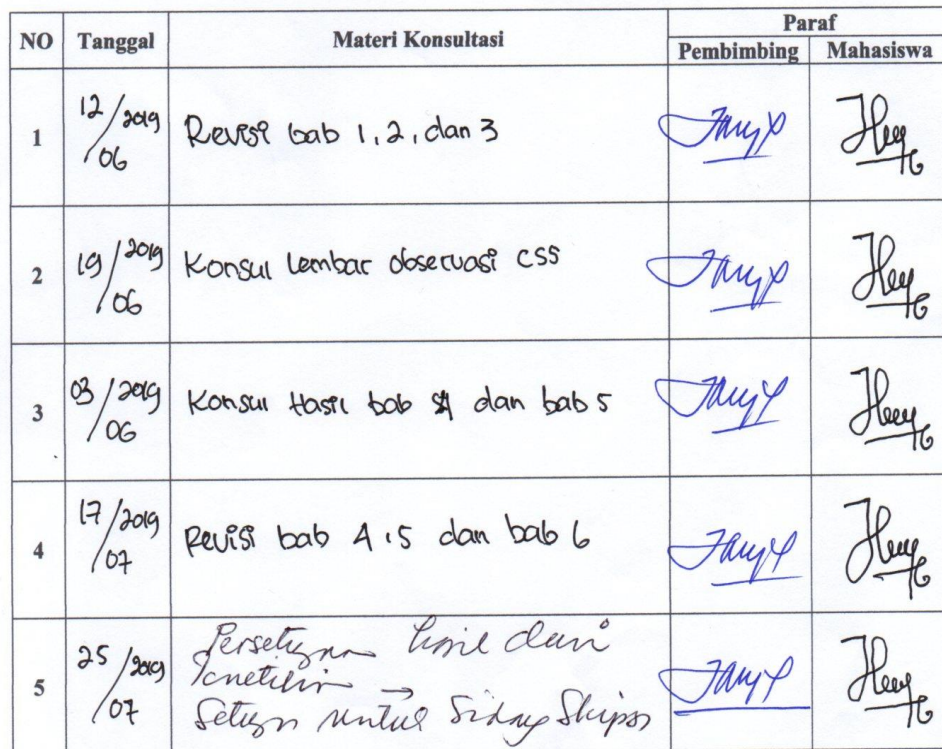 NO Tanggal Materi Konsultasi Paraf
Pembimbing Mahasiswa
1 12/2019/06 Revisi bab 1, 2, dan 3
2 19/2019/06 Konsul lembar observasi CSS
3 03/2019/06 Konsul Hasil bab 4 dan bab 5
4 17/2019/07 Revisi bab 4, 5 dan bab 6
5 25/2019/07 Persetujuan hasil dari
→
Setuju untuk Sidang Skripsi